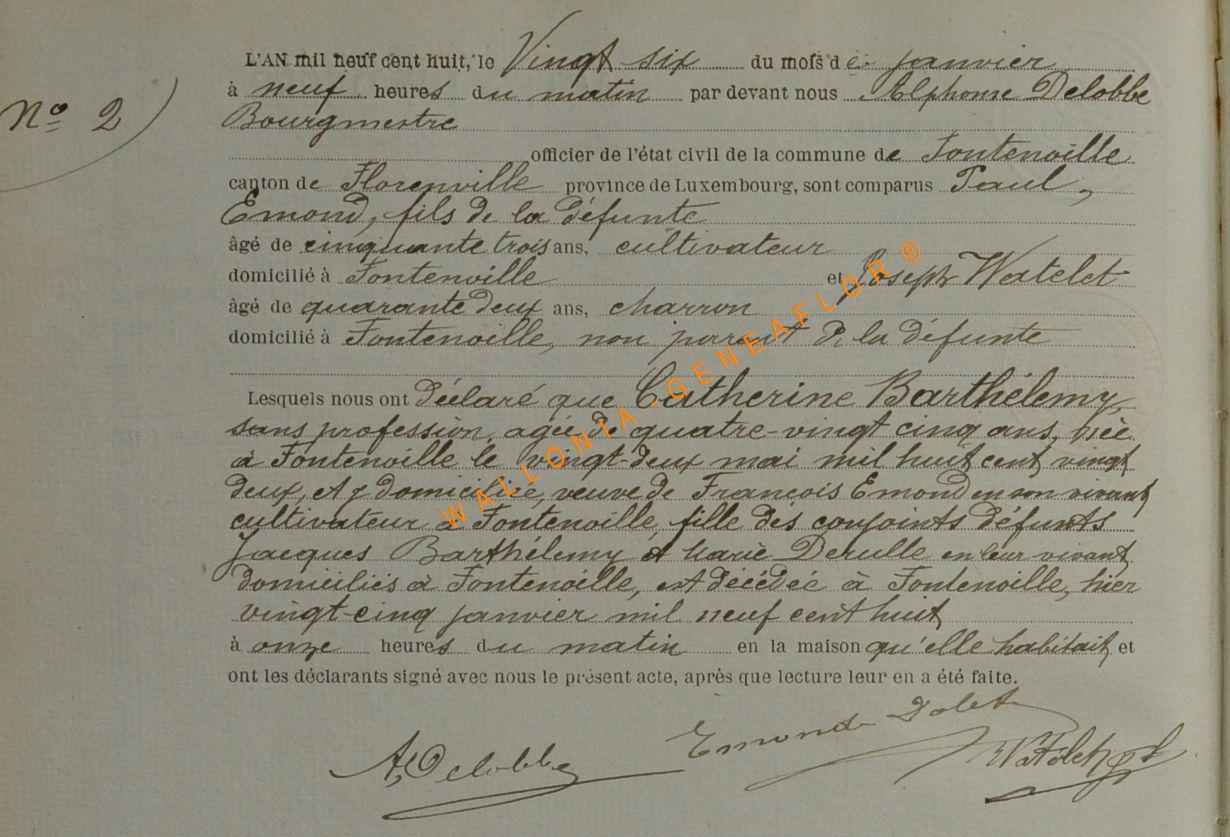 Nº 2
L'AN mil neuf cent huit, le Vingt six du mois de janvier
à neuf heures du matin par devant nous Alphonse Delobbe
Bourgmestre
officier de l'état civil de la commune de Fontenoille
canton de Florenville province de Luxembourg, sont comparus Paul,
Emond, fils de la défunte
âgé de cinquante trois ans, cultivateur
domicilié à Fontenoille et Joseph Watelet
âgé de quarante deux ans, charron
domicilié à Fontenoille, non parent de la défunte
Lesquels nous ont déclaré que Catherine Barthélemy,
sans profession, agée de quatre-vingt cinq ans, née
à Fontenoille le vingt-deux mai mil huit cent vingt
deux, et y domiciliée, veuve de François Emond en son vivant
cultivateur à Fontenoille, fille des conjoints défunts
Jacques Barthélemy et Marie Derulle en leur vivant
domiciliés à Fontenoille, est décédée à Fontenoille, hier
vingt-cinq janvier mil neuf cent huit
à onze heures du matin en la maison qu'elle habitait et
ont les déclarants signé avec nous le présent acte, après que lecture leur en a été faite.
A. Delobbe Emond Watelet
WALLONIA - GENEAFLOR ®